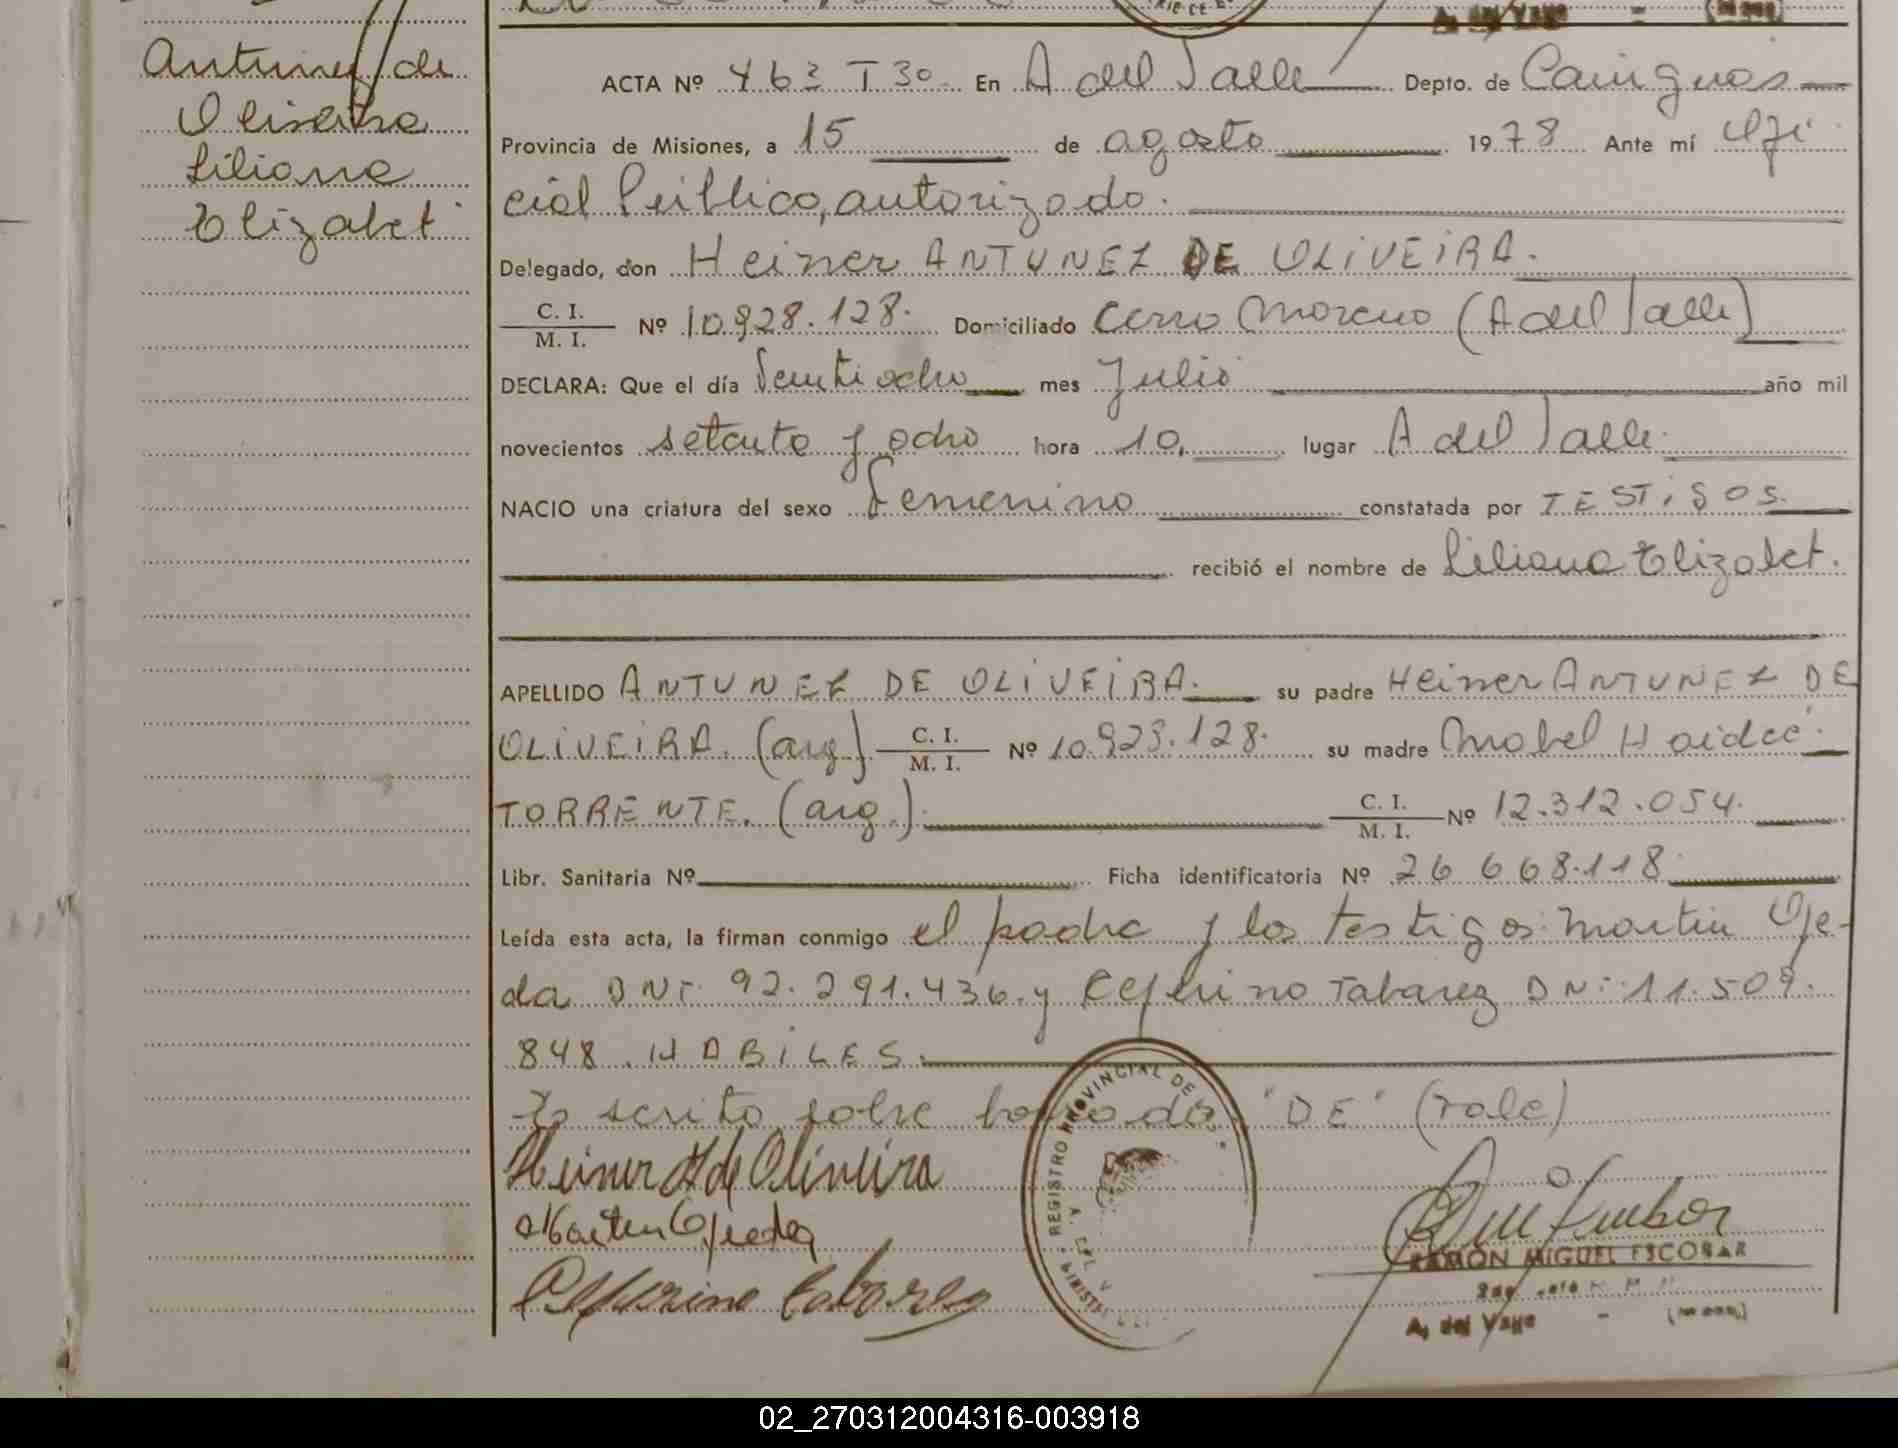 Antunez de
Oliveira
Liliana
Elizabet
A. del Valle - (Mnes)
ACTA Nº 463 T 3º. En A del Valle Depto. de Cainguas
Provincia de Misiones, a 15 de agosto 1978 Ante mí Ofi
cial Público, autorizado.
Delegado, don Heiner ANTUNEZ DE OLIVEIRA.
C. I.
M. I. Nº 10.928.128. Domiciliado Cerro Moreno (A del Valle)
DECLARA: Que el día Veintiocho mes Julio año mil
novecientos setenta y ocho hora 10, lugar A del Valle.
NACIO una criatura del sexo Femenino constatada por TESTIGOS.
recibió el nombre de Liliana Elizabet.
APELLIDO ANTUNEZ DE OLIVEIRA. su padre Heiner ANTUNEZ DE
OLIVEIRA. (arg) C. I. M. I. Nº 10.923.128. su madre Mabel Haideé
TORRENTE. (arg.). C. I. M. I. Nº 12.312.054.
Libr. Sanitaria Nº Ficha identificatoria Nº 26 668.118
Leída esta acta, la firman conmigo el padre y los testigos: Martin Oje-
da DNI. 92.291.436. y Ceferino Tabarez DNI: 11.509.
848. HABILES.
Escrito sobre borrado "DE" (vale)
Heiner A de Oliveira
Martin Ojeda
Ceferino tabarez
REGISTRO PROVINCIAL DE
RAMON MIGUEL ESCOBAR
A. del Valle - (Mnes)
02_270312004316-003918